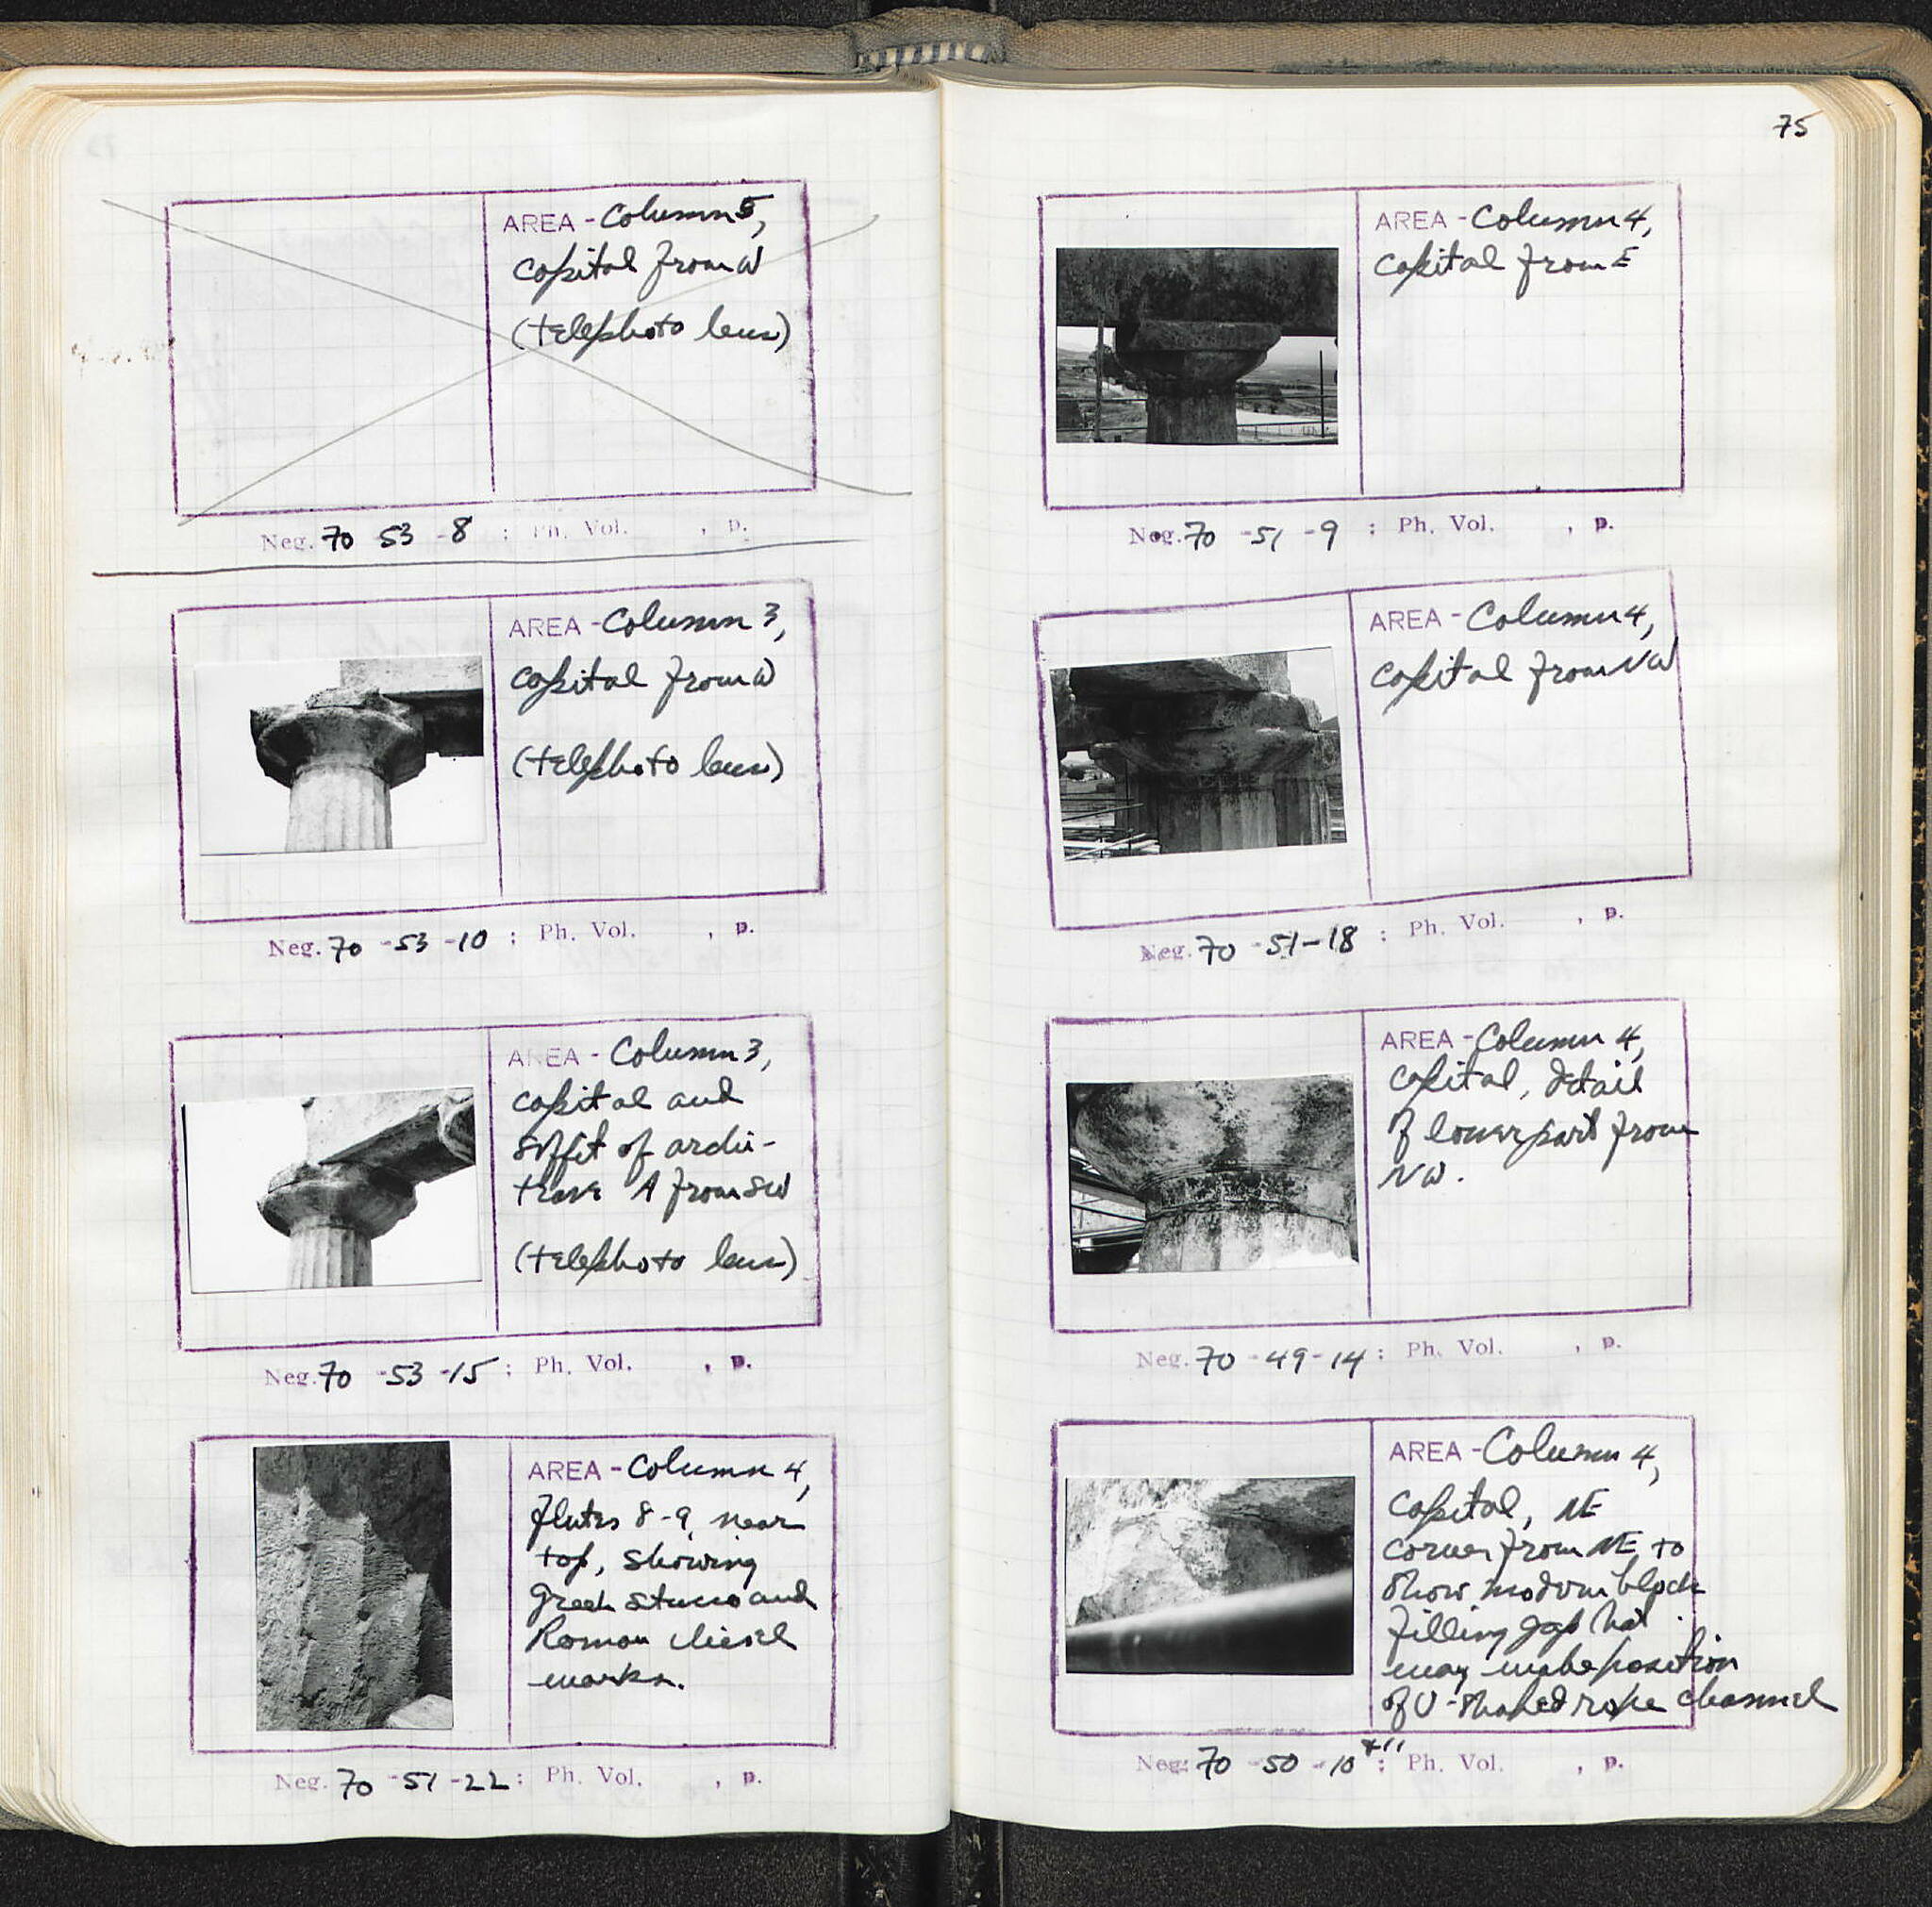 AREA - Column 5,
capital from W
(telephoto lens)
Neg. 70 53 -8 : Ph. Vol. , p.
AREA - Column 3,
capital from W
(telephoto lens)
Neg. 70 -53 -10 ; Ph. Vol. , p.
AREA - Column 3,
capital and
soffit of archi-
trave A from SW
(telephoto lens)
Neg. 70 -53 -15 ; Ph. Vol. , p.
AREA - Column 4,
flutes 8-9, near
top, showing
Greek stucco and
Roman chisel
marks.
Neg. 70 -51 -22 ; Ph. Vol. , p.
75
AREA - Column 4,
capital from E
Neg. 70 -51 -9 ; Ph. Vol. , p.
AREA - Column 4,
capital from NW
Neg. 70 -51-18 : Ph. Vol. , p.
AREA - Column 4,
capital, detail
of lower part from
NW.
Neg. 70 -49-14 : Ph. Vol. , p.
AREA - Column 4,
capital, NE
corner from NE, to
show modern block
filling gap that
may be position
of U-shaped rope channel
Neg: 70 -50 -10 +11 ; Ph. Vol. , p.